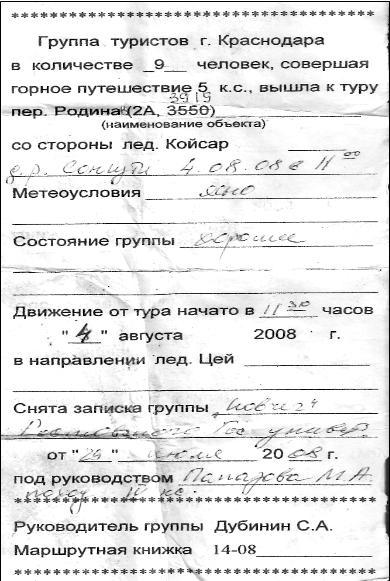 ****************************************
Группа туристов г. Краснодара
в количестве _9_ человек, совершая
горное путешествие 5 к.с., вышла к туру
3919
пер. Родина (2А, 3550)
(наименование объекта)
со стороны лед. Койсар
д.р. Сонгути 4.08.08 в 11 00
Метеоусловия ясно
Состояние группы хорошее
Движение от тура начато в 11 30 часов
"4" августа 2008 г.
в направлении лед. Цей
Снята записка группы
Гос. универ.
от "29" июля 2008 г.
под руководством М.А.
****************************************
Руководитель группы Дубинин С.А.
Маршрутная книжка 14-08
****************************************